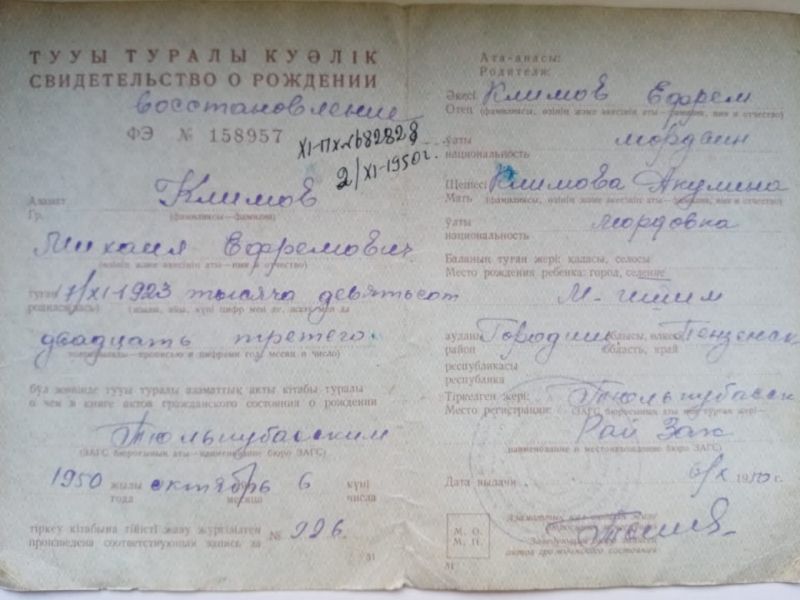 ТУУЫ ТУРАЛЫ КУӘЛІК
СВИДЕТЕЛЬСТВО О РОЖДЕНИИ
восстановление
ФЭ № 158957
XI-ПХ № 682828
2/XI-1950г.
Азамат Климов
Гр. (фамилиясы—фамилия)
Михаил Ефремович
(өзінің және әкесінің аты—имя и отчество)
туған 17/XI-1923 тысяча девятьсот
родился(лась)
двадцать третего
прописью и цифрами год, месяц и число)
бұл жөнінде тууы туралы азаматтық акты кітабы туралы
о чем в книге актов гражданского состояния о рождении
Тюлькубасским
(ЗАГС бюросының аты—наименование бюро ЗАГС)
1950 жылы октябрь 6 күні
года месяца числа
тіркеу кітабына тийісті жазу жүргізілген
произведена соответствующая запись за № 226.
51
Ата-анасы:
Родители:
Әкесі Климов Ефрем
Отец (фамилиясы, өзінің және әкесінің аты—фамилия, имя и отчество)
ұлты мордвин
национальность
Шешесі Климова Акулина
Мать (фамилиясы, өзінің және әкесінің аты—фамилия, имя и отчество)
ұлты мордовка
национальность
Баланың туған жері: қаласы, селосы
Место рождения ребенка: город, селение
М-ишим
ауданы Городищ облысы, өлкесі Пензенск
район область, край
республикасы
республика
Тіркелген жері: Тюлькубасск
Место регистрации: (ЗАГС бюросының аты мен тұрған жері—
Рай Загс
(наименование и местонахождение бюро ЗАГС)
Дата выдачи 6/X 1950 г.
М. О.
М. П.
Заведующий бюро записей
актов гражданского состояния
51